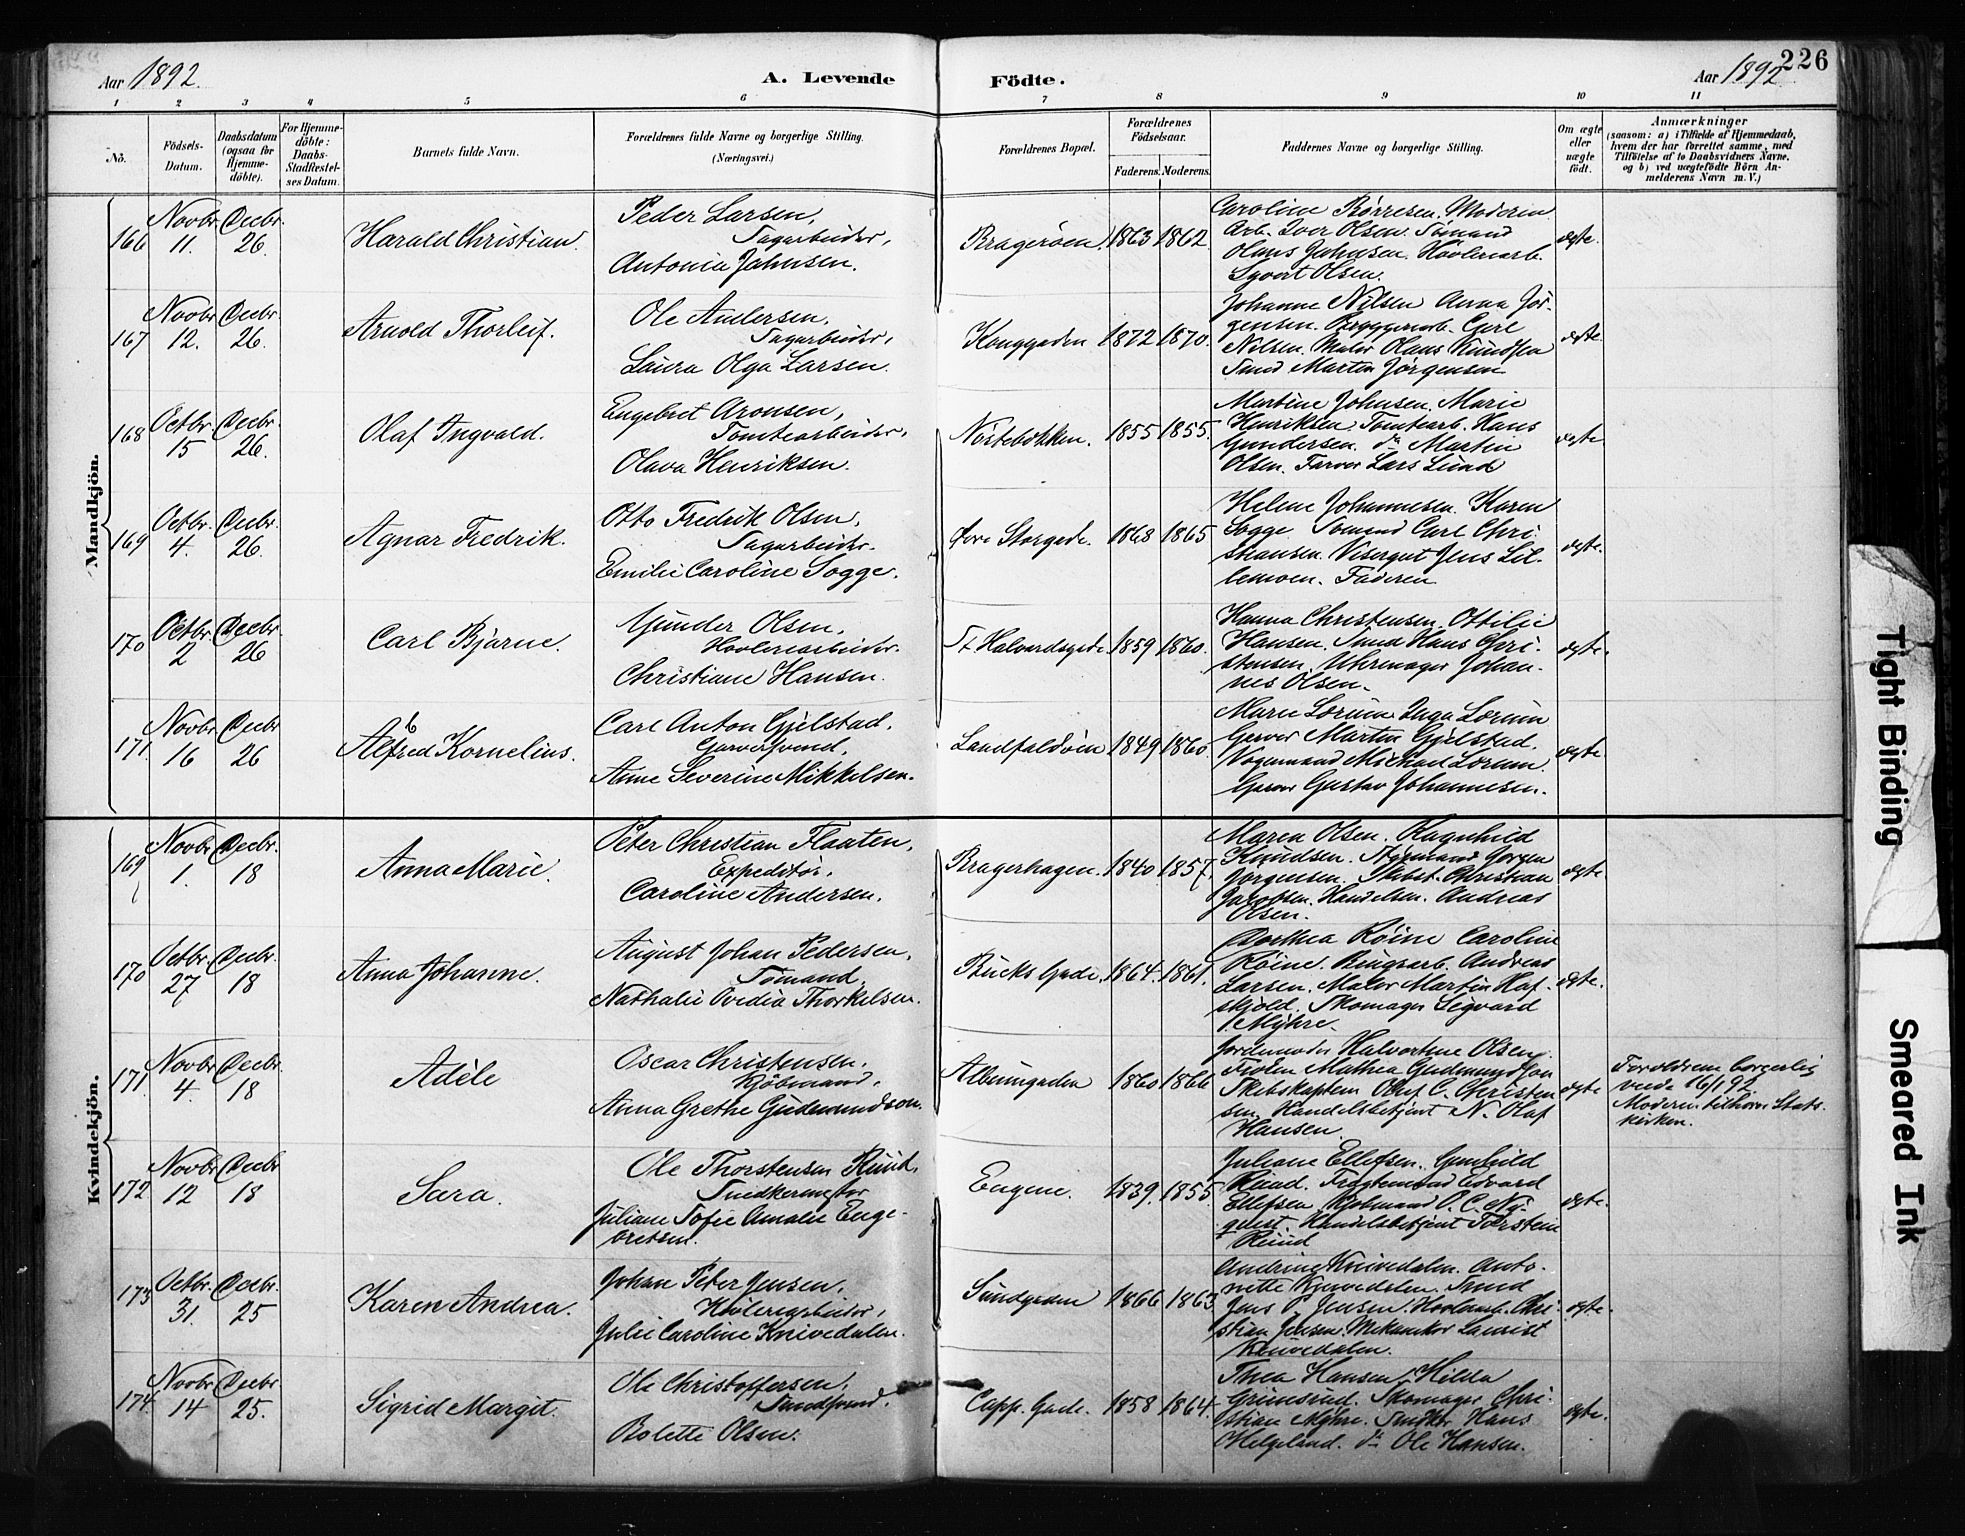 Aar 1892.
A. Levende
Födte.
Aar 1892
226
1 2 3 4 5 6 7 8 9 10 11
No.
Födsels-
Datum.
Daabsdatum
(ogsaa for
Hjemme-
döbte).
For Hjemme-
döbte:
Daabs-
Stadfæstel-
ses Datum.
Barnets fulde Navn.
Forældrenes fulde Navne og borgerlige Stilling.
(Næringsvei.)
Forældrenes Bopæl.
Forældrenes
Födselsaar.
Faderens.
Moderens.
Faddernes Navne og borgerlige Stilling.
Om ægte
eller
uægte
födt.
Anmærkninger
(saasom: a) i Tilfælde af Hjemmedaab,
hvem der har forrettet samme, med
Tilföielse af to Daabsvidners Navne,
og b) ved uægtefödte Börn An-
melderens Navn m. V.)
Mandkjön.
166
Novbr. 11.
Decbr. 26.
Harald Christian.
Peder Larsen,
Sagarbeider,
Antonia Jahnsen.
Bragerøen.
1863
1862
Caroline Børresen. Moderen
Arb. Iver Olsen. Sømand
Olaus Jahnsen. Høvleriarb.
Syvert Olsen.
ægte.
167
Novbr. 12.
Decbr. 26.
Arnold Thorleif.
Ole Andersen,
Sagarbeider,
Laura Olga Larsen.
Konggaden
1872
1870.
Johanne Nilsen Anna Jør-
gensen. Bryggeriarb. Carl
Nilsen. Maler Olaus Knudsen
Smed Martin Jørgensen
ægte.
168
Octbr. 15
Decbr. 26.
Olaf Ingvald.
Engebret Aronsen,
Tomtearbeider,
Olava Henriksen.
Nøstebakken.
1855
1855.
Martine Johnsen. Marie
Henriksen. Tomtearb. Hans
Gundersen. do Martin
Olsen. Farver Lars Lund
ægte
169
Octbr. 4
Decbr. 26
Agnar Fredrik.
Otto Fredrik Olsen,
Sagarbeider.
Emilie Caroline Sogge.
Øvre Storgade.
1868
1865
Helene Johannesen. Karen
Sogge Sømand Carl Chri-
stiansen. Visergut Jens Lil-
lemoen. Faderen
ægte.
170
Octbr. 2
Decbr. 26
Carl Bjarne.
Gunder Olsen,
Høvleriarbeider.
Christiane Hansen.
St Halvardsgade
1859
1860.
Hanna Christensen. Ottilie
Hansen. Smed Hans Chri-
stensen. Uhrmager Johan-
nes Olsen.
ægte.
171.
Novbr. 16
Decbr. 26
Alfred Kornelius.
Carl Anton Gjelstad,
Garversvend,
Anne Severine Mikkelsen.
Landfaldøen
1849
1860.
Marie Lorum Inga Lorum
Garver Martin Gjelstad.
Vognmand Michael Lorum.
Garver Gustav Johannesen.
ægte.
Kvindekjön.
169
Novbr. 1.
Decbr. 18
Anna Marie.
Peter Christian Flaaten,
Expeditør,
Caroline Andersen.
Bragerhagen.
1840
1857.
Maren Olsen. Ragnhild
Knudsen. Styrmand Jørgen
Jørgensen. Skibst. Christian
Jacobsen. Handelsm. Andreas
Olsen.
ægte
170
Octbr. 27
Decbr. 18
Anna Johanne.
August Johan Pedersen,
Sømand,
Nathalie Ovidia Thorkelsen.
Bucks Gade.
1864.
1861.
Dorthea Røine Caroline
Røine. Brugsarb. Andreas
Larsen. Maler Martin Haf-
skjold. Skomager Sigvard
Myhre.
ægte.
171.
Novbr. 4.
Decbr. 18
Adèle
Oscar Christensen,
Kjøbmand,
Anna Grethe Gudmundson.
Albumgaden
1860
1866
Jordemoder Halvordine Olsen.
Frøken Mathea Gudmundson
Skibskaptein Oluf C. Christen
sen Handelsbetjent N. Olaf
Hansen
ægte
Forældrene borgerlig
viede 16/1 92
Moderen tilhører Stats-
kirken.
172
Novbr 12
Decbr 18
Sara.
Ole Thorstensen Ruud,
Snedkermester
Juliane Sofie Amalie Enge-
bretsen.
Engene.
1839.
1855.
Juliane Ellefsen. Gunhild
Ruud. Fragtemand Edvard
Ellefsen Kjøbmand O. C. Ny-
quist. Handelsbetjent Torstein
Ruud
ægte.
173
Octbr. 31.
Decbr. 25
Karen Andrea.
Johan Peter Jensen,
Høvleriarbeider,
Julie Caroline Knivedalen.
Sundgaden
1866
1863
Andrine Knivedalen. Anto-
nette Knivedalen. Smed
Jens P. Jensen. Høvleriarb. Chri-
stian Jensen. Mekaniker Laurist
Knivedalen.
ægte.
174.
Novbr. 14
Decbr. 25.
Sigrid Margit.
Ole Christoffersen,
Smedsvend,
Bolette Olsen.
Capp. Gade.
1858
1864.
Thea Hansen Hilda
Grimsrud. Skomager Chri-
stian Myhre. Snedker Hans
Helgeland. do Ole Hansen.
ægte.
Tight Binding
Smeared Ink